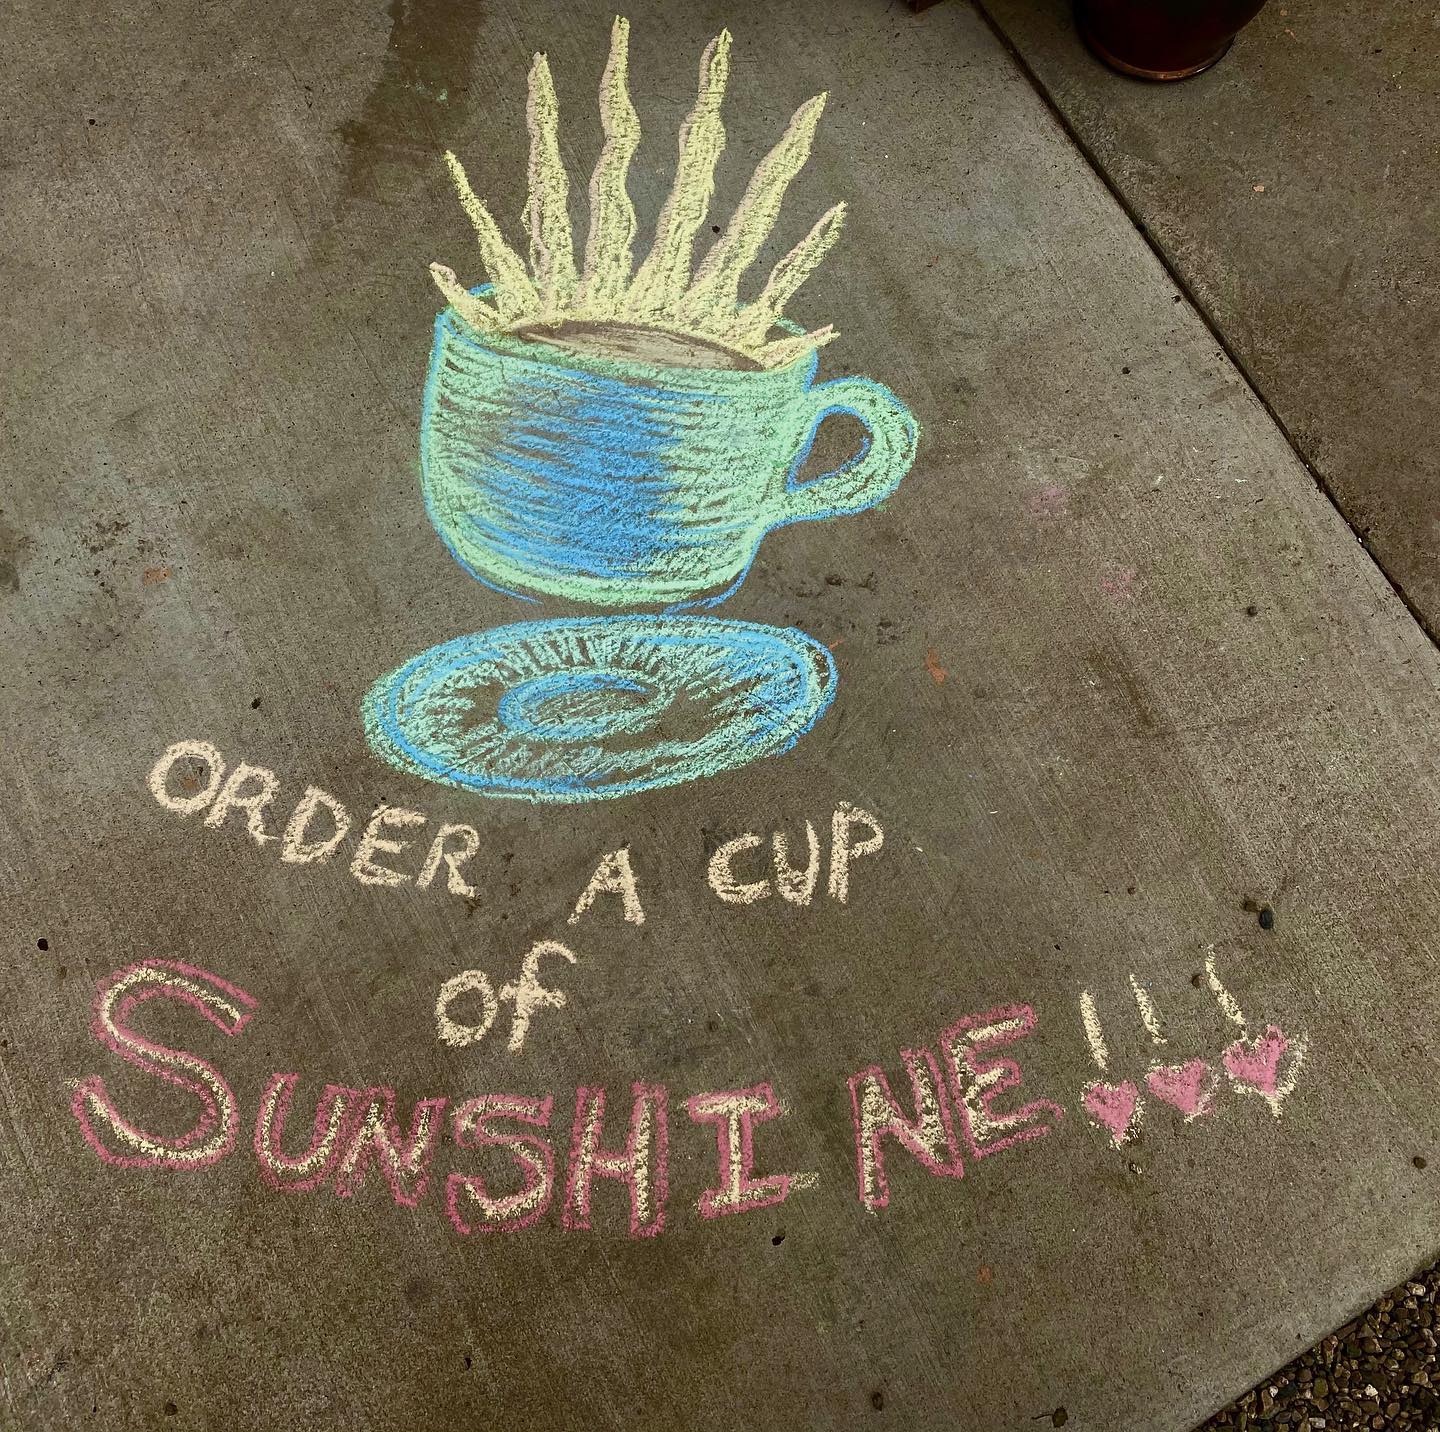 ORDER A CUP
of
SUNSHINE!!!